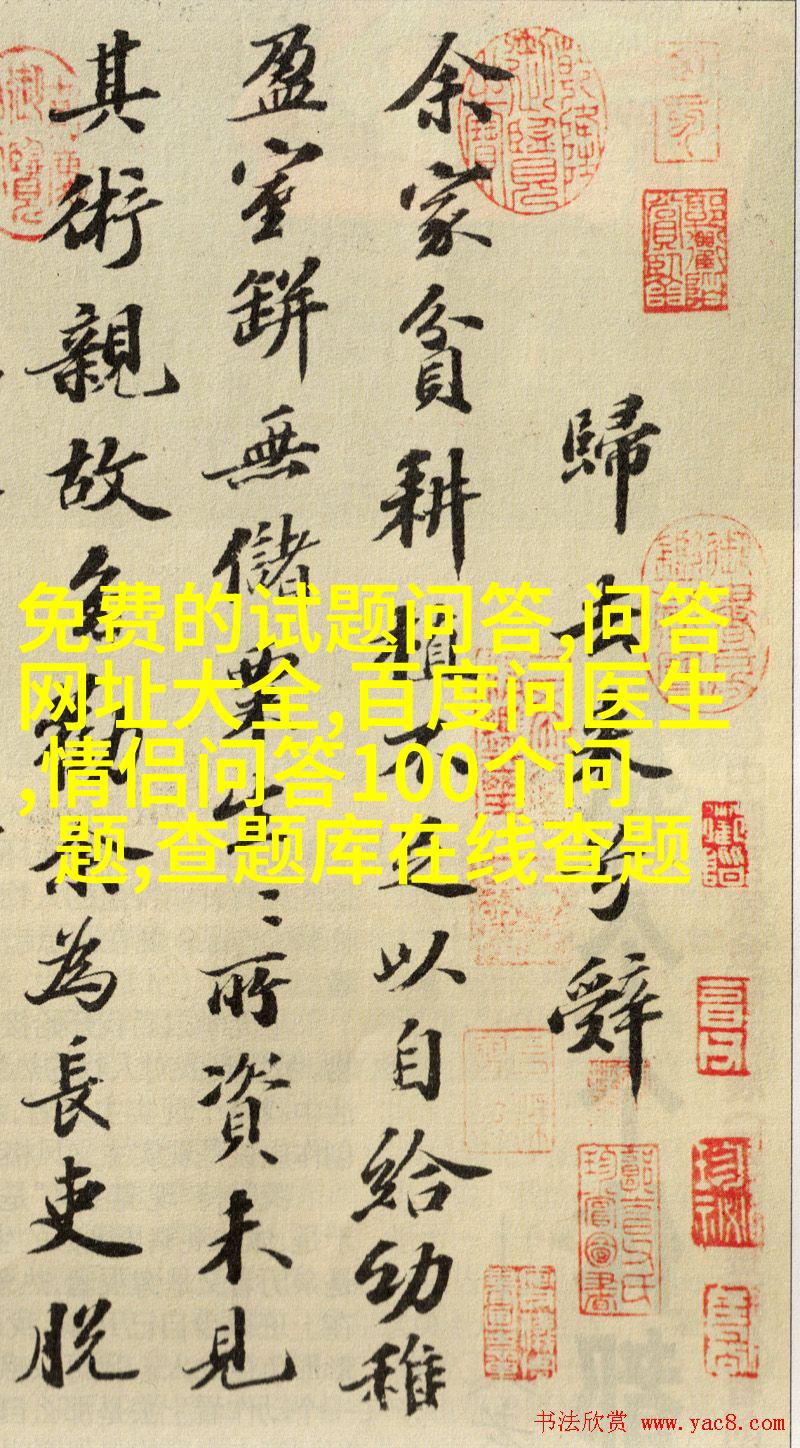 歸去來兮辭
余家貧耕植不足以自給幼稚
盈室缾無儲粟生〻所資未見
其術親故多勸余為長吏脫
免费的试题问答,问答
网址大全,百度问医生
,情侣问答100个问
题,查题库在线查题
书法欣赏 www.yac8.com